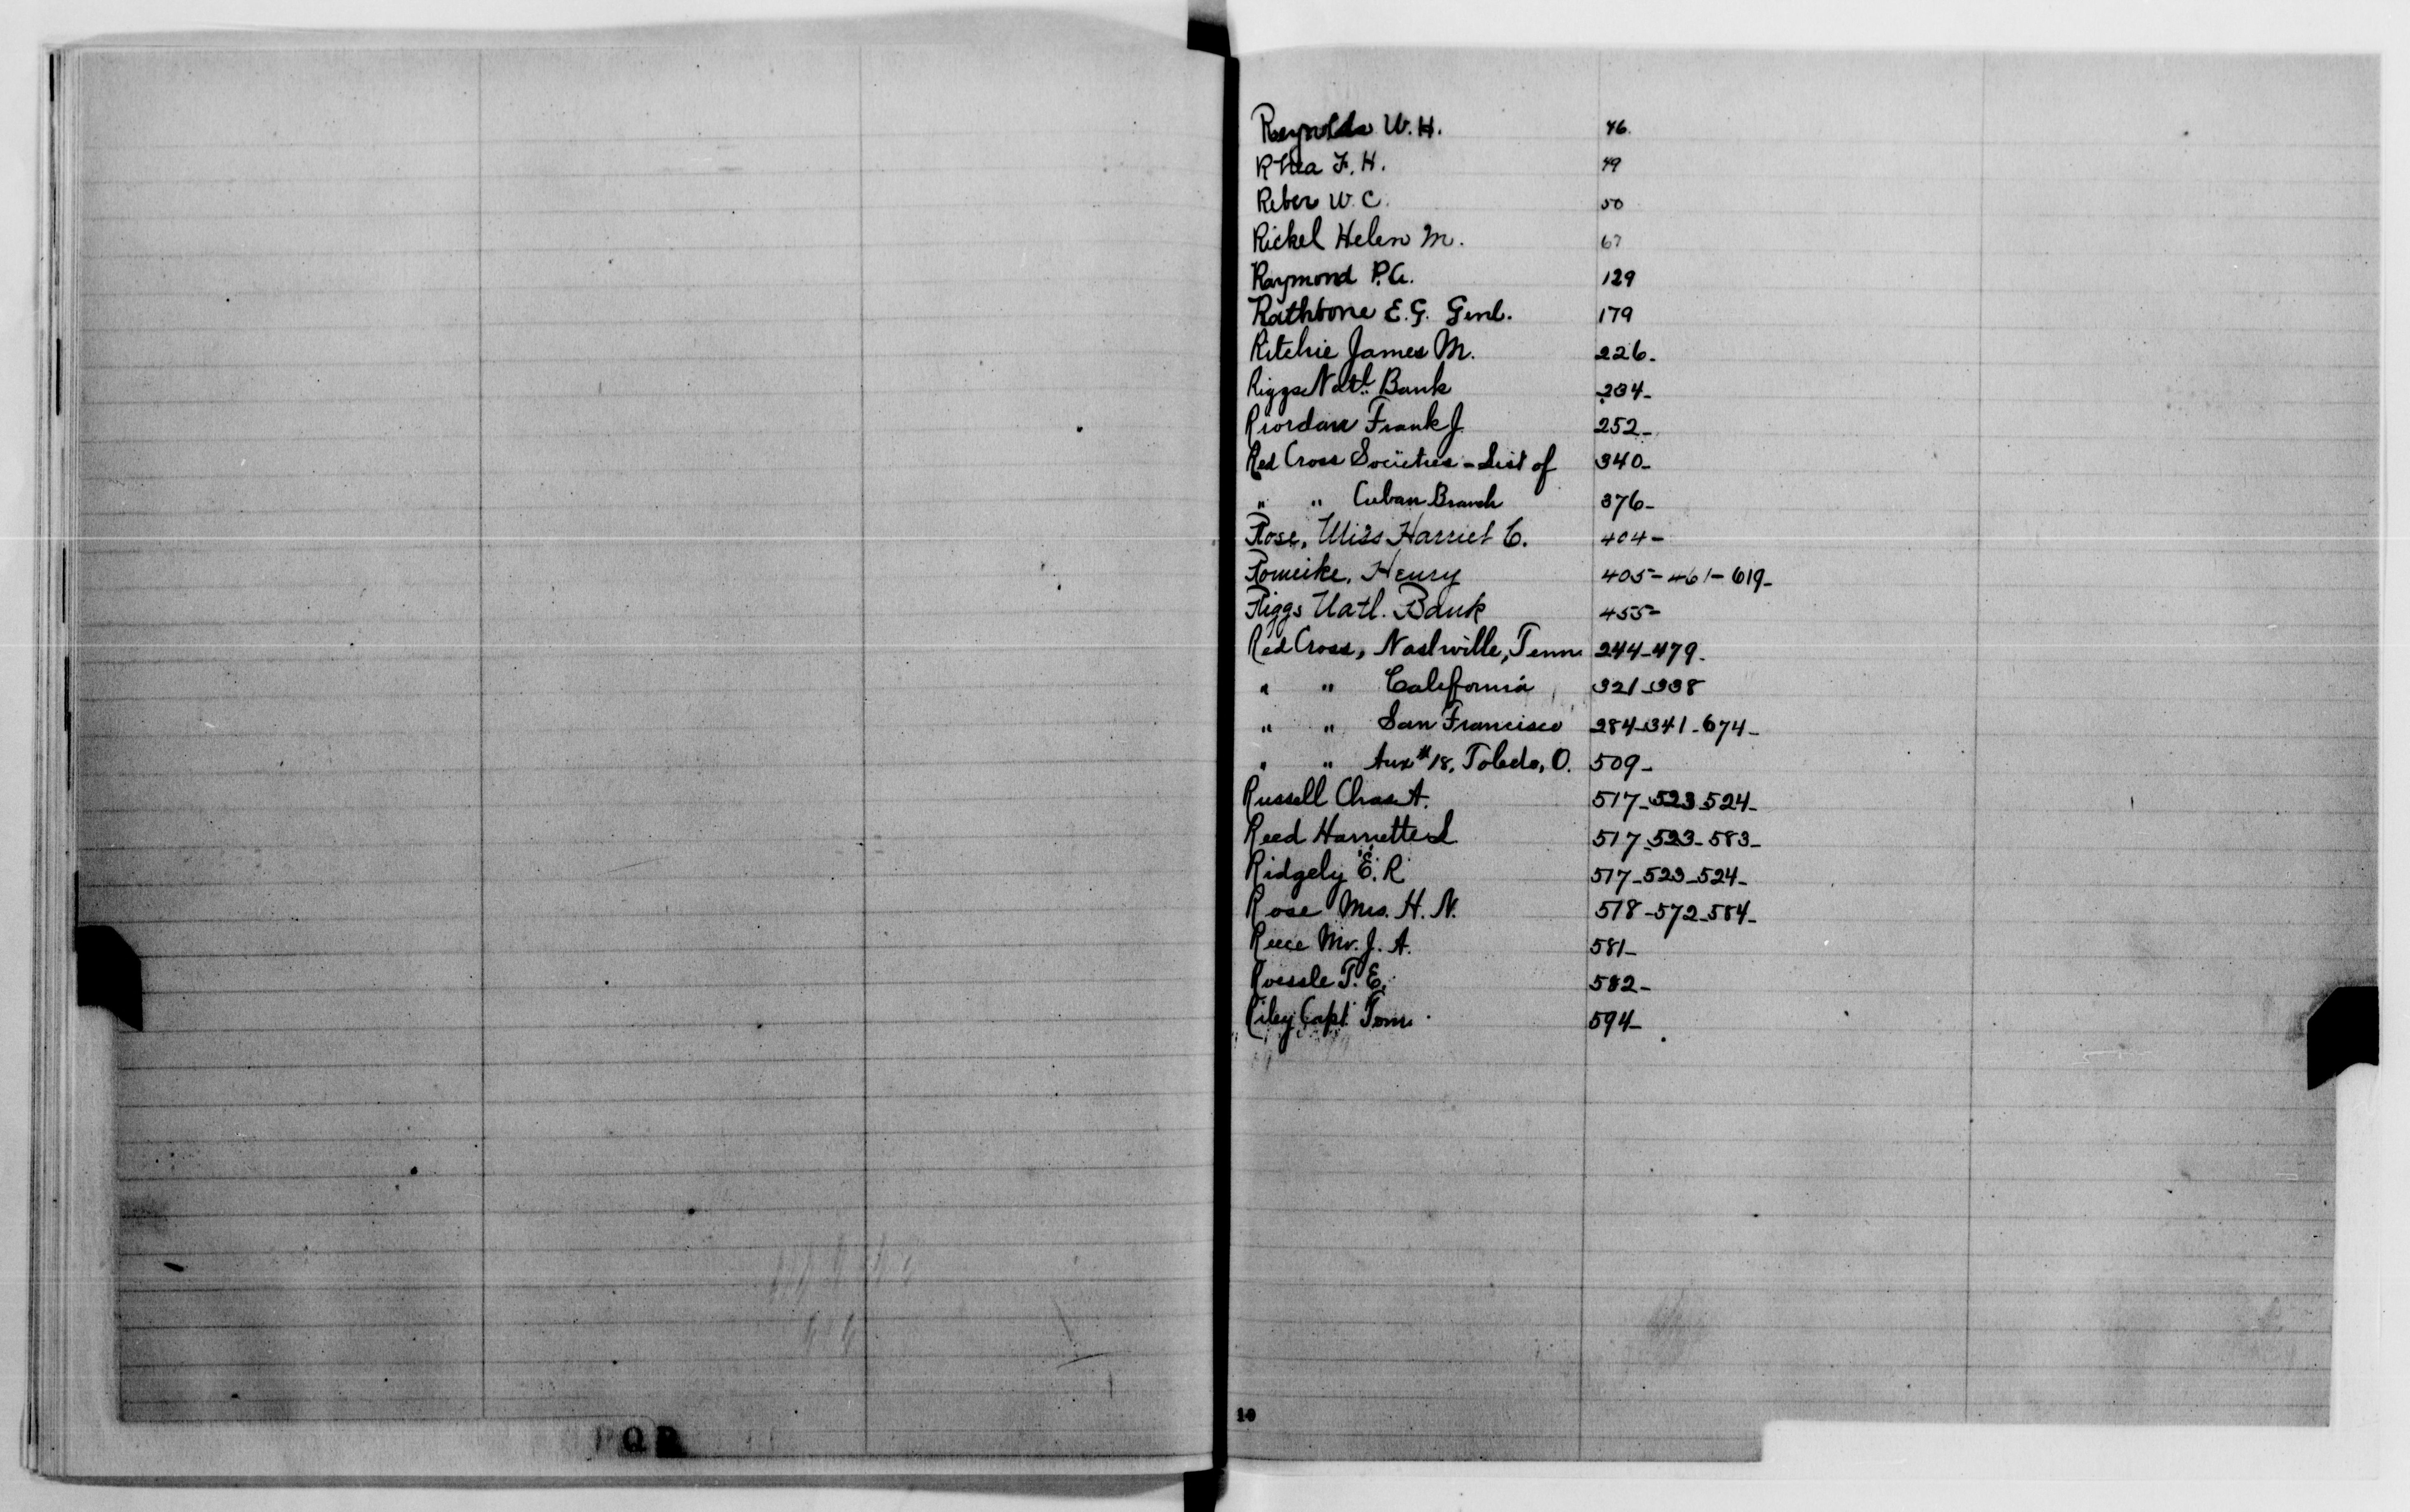 Reynolds W. H. 46.
Rhea F. H. 49
Reber W. C. 50
Rickel Helen M. 67
Raymond P. A. 129
Rathbone E. G. Genl. 179
Ritchie James M. 226-
Riggs Natl. Bank 234-
Riordan Frank J. 252-
Red Cross Societies - List of 340-
" " Cuban Branch 376-
Rose, Miss Harriet C. 404-
Romeike, Henry 405-461-619-
Riggs Natl. Bank 455-
Red Cross, Nashville, Tenn 244-479-
" " California 321-338
" " San Francisco 284-341-674-
" " Aux #18, Toledo, O. 509-
Russell Chas A. 517-523-524-
Reed Harriette L 517-523-583-
Ridgely E. R 517-523-524-
Rose Mrs. H. N. 518-572-584-
Reece Mr. J. A. 581-
Roessle T. E. 582-
Riley Capt. Tom. 594-
10
P Q R